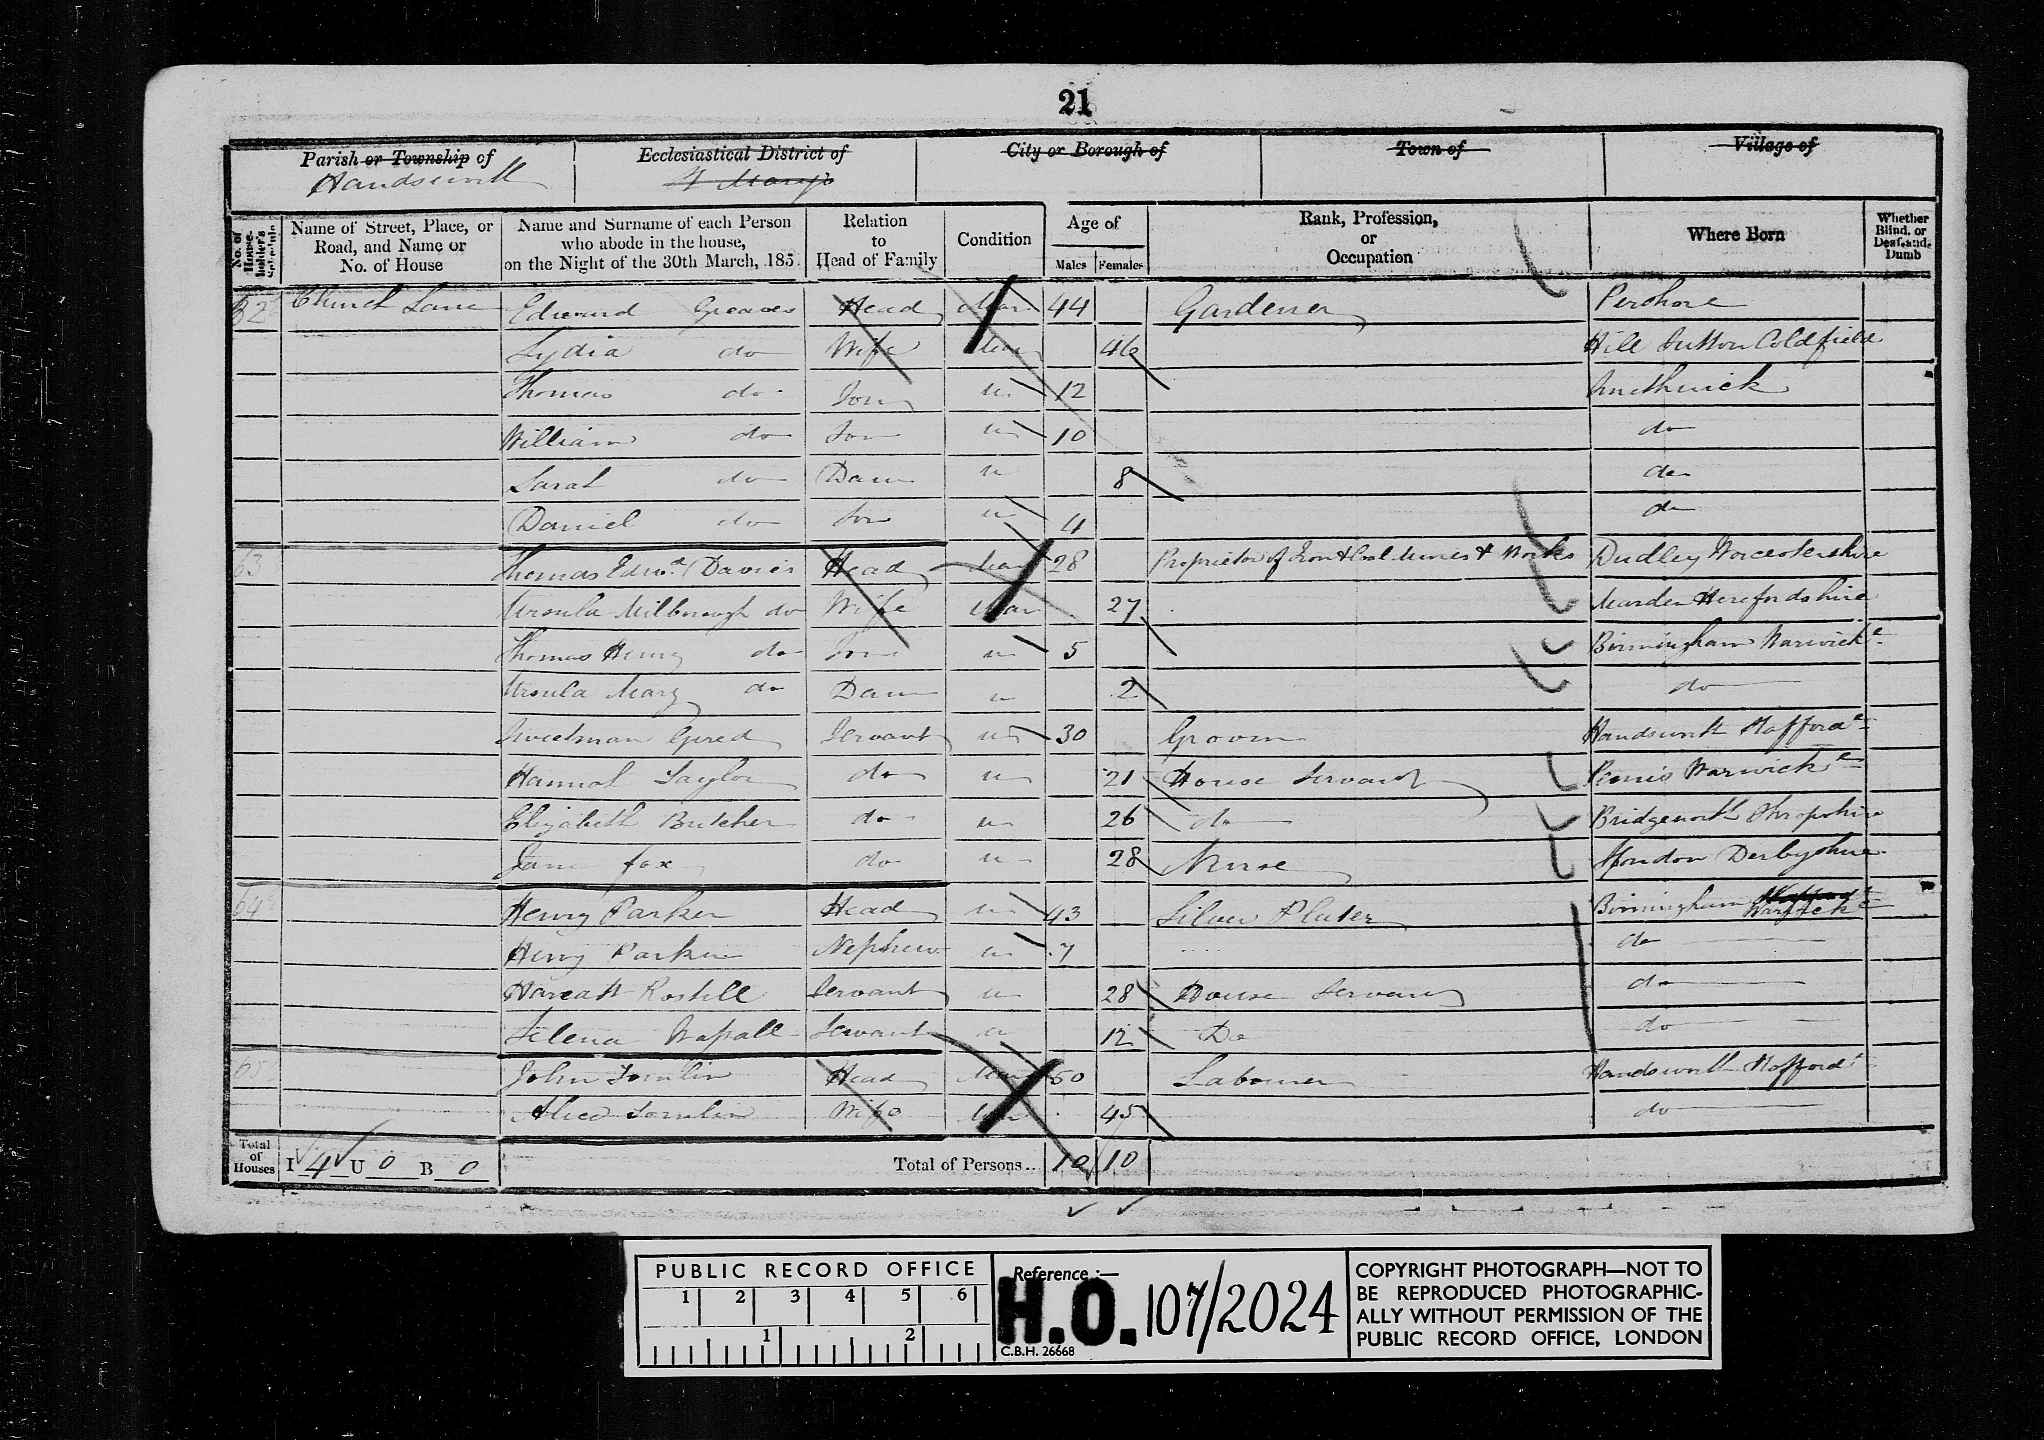 21
Parish or Township of
Handsworth
Ecclesiastical District of
St Mary's
City or Borough of
Town of
Village of
No. of House-holder's Schedule
Name of Street, Place, or Road, and Name or No. of House
Name and Surname of each Person who abode in the house, on the Night of the 30th March, 185
Relation to Head of Family
Condition
Age of
Males Females
Rank, Profession, or Occupation
Where Born
Whether Blind, or Deaf-and-Dumb
62 Church Lane Edward Greaves Head Mar 44 Gardener Pershore
Lydia do Wife Mar 46 Hill Sutton Coldfield
Thomas do Son u 12 Smethwick
William do Son u 10 do
Sarah do Daur u 8 do
Daniel do Son u 4 do
63 Thomas Edwd Davies Head Mar 28 Proprietor of Iron & Coal Mines & Works Dudley Worcestershire
Ursula Milborough do Wife Mar 27 Marden Herefordshire
Thomas Henry do Son u 5 Birmingham Warwick
Ursula Mary do Daur u 2 do
Sweetman Servant u 30 Groom Handsworth Stafford
Hannah Taylor do u 21 House Servant Warwick
Elizabeth Butcher do u 26 do Bridgnorth Shropshire
Jane Fox do u 28 Nurse Spondon Derbyshire
64 Henry Parker Head u 43 Silver Plater Birmingham Stafford Warwick
Henry Parker Nephew u 7 do
Servant u 28 House Servant do
Selena Servant u 12 Do do
65 John Tomlin Head Mar 50 Labourer Handsworth Stafford
Alice Tomlin Wife Mar 45 do
Total of Houses I 4 U 0 B 0 Total of Persons.. 10 10
PUBLIC RECORD OFFICE
1 2 3 4 5 6
1 2
Reference :—
H.O. 107/2024
C.B.H. 26668
COPYRIGHT PHOTOGRAPH—NOT TO
BE REPRODUCED PHOTOGRAPHIC-
ALLY WITHOUT PERMISSION OF THE
PUBLIC RECORD OFFICE, LONDON